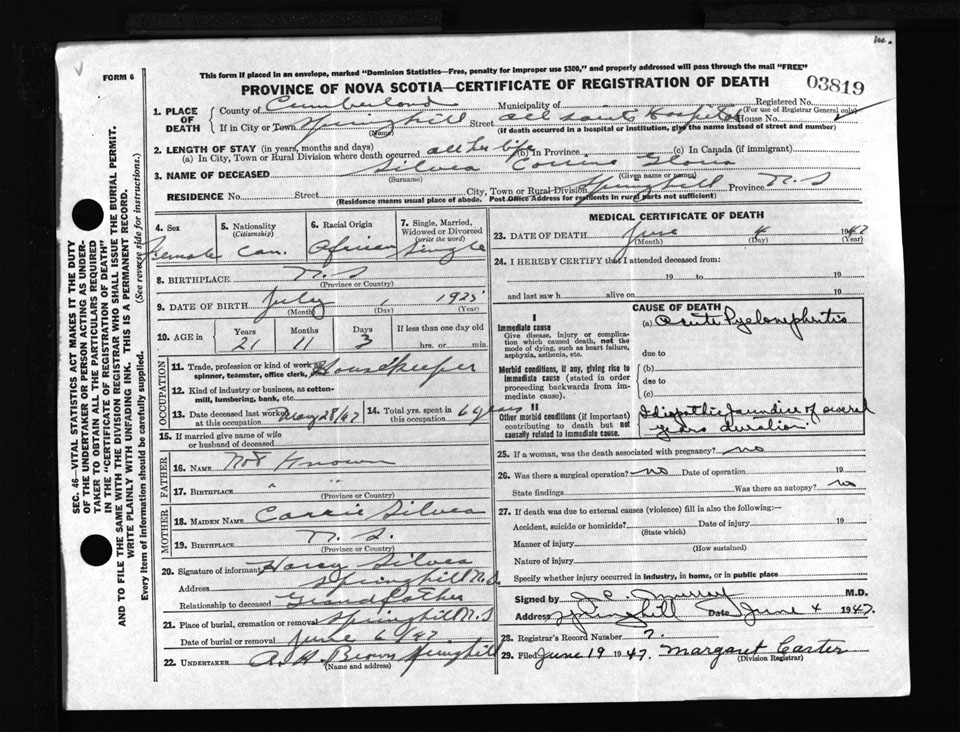 FORM 6
This form if placed in an envelope, marked "Dominion Statistics—Free, penalty for improper use $300," and properly addressed will pass through the mail "FREE"
PROVINCE OF NOVA SCOTIA—CERTIFICATE OF REGISTRATION OF DEATH
03819
1. PLACE OF DEATH
County of Cumberland Municipality of Registered No.
(For use of Registrar General only)
If in City or Town Springhill Street All Saints Hospital House No.
(Name) (If death occurred in a hospital or institution, give the name instead of street and number)
2. LENGTH OF STAY (in years, months and days)
(a) In City, Town or Rural Division where death occurred all her life (b) In Province (c) In Canada (if immigrant)
3. NAME OF DECEASED Silvea Corrine Gloria
(Surname) (Given name or names)
RESIDENCE No. Street City, Town or Rural Division Springhill Province N.S
(Residence means usual place of abode. Post Office Address for residents in rural parts not sufficient)
4. Sex Female
5. Nationality (Citizenship) Can.
6. Racial Origin African
7. Single, Married, Widowed or Divorced (write the word) Single
8. BIRTHPLACE N.S
(Province or Country)
9. DATE OF BIRTH July 1 1925
(Month) (Day) (Year)
10. AGE in Years Months Days If less than one day old
21 11 3 hrs. or min.
OCCUPATION
11. Trade, profession or kind of work as spinner, teamster, office clerk, Housekeeper
12. Kind of industry or business, as cotton-mill, lumbering, bank, etc.
13. Date deceased last worked at this occupation May 28/47
14. Total yrs. spent in this occupation 6 years
15. If married give name of wife or husband of deceased
FATHER
16. NAME Not Known
17. BIRTHPLACE " "
(Province or Country)
MOTHER
18. MAIDEN NAME Carrie Silvea
19. BIRTHPLACE N.S.
(Province or Country)
20. Signature of informant Silvea
Address Springhill N.S.
Relationship to deceased Grandfather
21. Place of burial, cremation or removal Springhill N.S
Date of burial or removal June 6/47
22. UNDERTAKER A. H. Brown Springhill
(Name and address)
MEDICAL CERTIFICATE OF DEATH
23. DATE OF DEATH June 4 1947
(Month) (Day) (Year)
24. I HEREBY CERTIFY that I attended deceased from:
19 to 19
and last saw h alive on 19
CAUSE OF DEATH
I
Immediate cause
Give disease, injury or complication which caused death, not the mode of dying, such as heart failure, asphyxia, asthenia, etc.
(a) Acute Pyelonephritis
due to
Morbid conditions, if any, giving rise to immediate cause (stated in order proceeding backwards from immediate cause).
(b)
due to
(c)
II
Other morbid conditions (if important) contributing to death but not causally related to immediate cause.
Idiopathic jaundice of several
years duration.
25. If a woman, was the death associated with pregnancy? no
26. Was there a surgical operation? no Date of operation 19
State findings Was there an autopsy? no
27. If death was due to external causes (violence) fill in also the following:—
Accident, suicide or homicide? Date of injury 19
(State which)
Manner of injury
(How sustained)
Nature of injury
Specify whether injury occurred in industry, in home, or in public place
Signed by J. C. Murray M.D.
Address Springhill Date June 4 1947.
28. Registrar's Record Number 7.
29. Filed June 19 1947. Margaret Carter
(Division Registrar)
SEC. 46—VITAL STATISTICS ACT MAKES IT THE DUTY
OF THE UNDERTAKER OR PERSON ACTING AS UNDER-
TAKER TO OBTAIN ALL THE PARTICULARS REQUIRED
IN THE "CERTIFICATE OF REGISTRATION OF DEATH"
AND TO FILE THE SAME WITH THE DIVISION REGISTRAR WHO SHALL ISSUE THE BURIAL PERMIT.
WRITE PLAINLY WITH UNFADING INK. THIS IS A PERMANENT RECORD.
Every item of information should be carefully supplied. (See reverse side for instructions.)